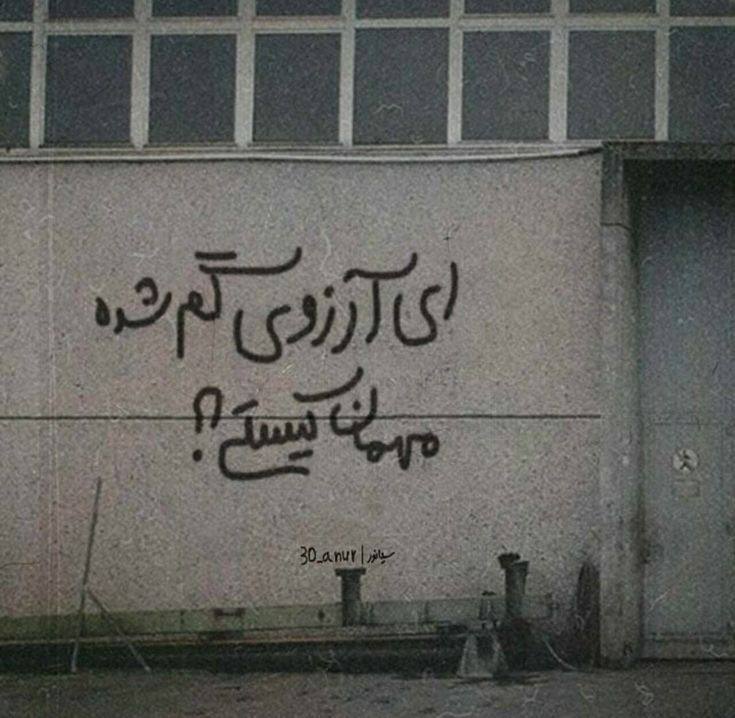 ای آرزوی گم شده
مهمان کیستی؟!
30_anur | سیانور